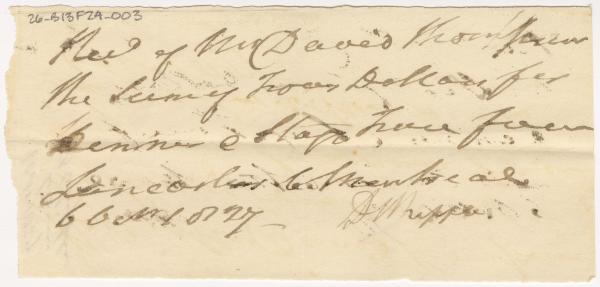 26-B13F2A-003
Recd of Mr David Thompson
the Sum of Four Dollars for
Dinner & Stage Fare from
Lancaster to Montreal
6 Octr 1827